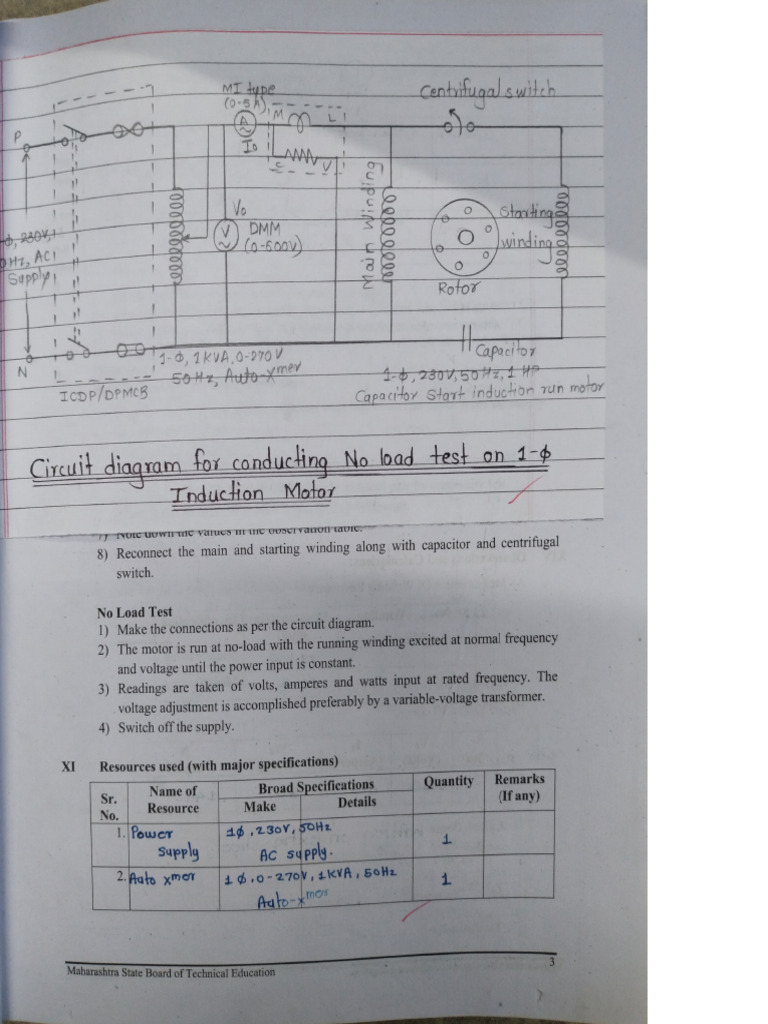 MI type
(0-5A)
Centrifugal switch
P
A
M
L
I0
C
V
V0
V
DMM
(0-600V)
Main Winding
Starting
winding
ϕ, 230V,
Hz, AC
Supply
Rotor
N
1-ϕ, 1KVA, 0-270V
50Hz, Auto-xmer
Capacitor
ICDP/DPMCB
1-ϕ, 230V, 50Hz, 1 HP
Capacitor Start induction run motor
Circuit diagram for conducting No load test on 1-ϕ
Induction Motor
7) Note down the values in the observation table.
8) Reconnect the main and starting winding along with capacitor and centrifugal
switch.
No Load Test
1) Make the connections as per the circuit diagram.
2) The motor is run at no-load with the running winding excited at normal frequency
and voltage until the power input is constant.
3) Readings are taken of volts, amperes and watts input at rated frequency. The
voltage adjustment is accomplished preferably by a variable-voltage transformer.
4) Switch off the supply.
XI Resources used (with major specifications)
Sr. No. Name of Resource Broad Specifications Quantity Remarks (If any)
Make Details
1. Power supply 1ϕ, 230V, 50Hz AC supply. 1
2. Auto xmer 1ϕ, 0-270V, 1KVA, 50Hz Auto-xmer 1
Maharashtra State Board of Technical Education 3